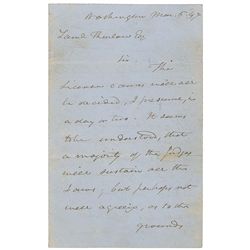 Washington Mar. 5. 47
Sir
The
License cases will all
be decided, I presume, in
a day or two. It seems
to be understood, that
a majority of the Judges
will sustain all the
Laws; but perhaps not
well agreeing, as to the
grounds